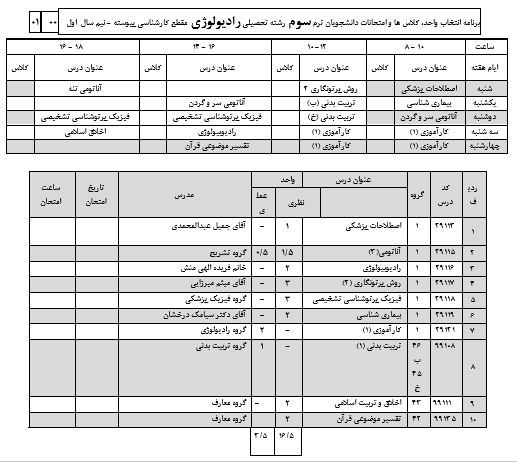 برنامه انتخاب واحد، کلاس ها و امتحانات دانشجویان ترم سوم رشته تحصیلی رادیولوژی مقطع کارشناسی پیوسته -نیم سال اول ۰۰ ۰۱
ساعت ۱۰ - ۸ ۱۲-۱۰ ۱۶ - ۱۴ ۱۸ - ۱۶
ایام هفته عنوان درس کلاس عنوان درس کلاس عنوان درس کلاس عنوان درس کلاس
شنبه اصطلاحات پزشکی روش پرتونگاری ۲ آناتومی تنه
یکشنبه بیماری شناسی تربیت بدنی (ب) آناتومی سر و گردن
دوشنبه آناتومی سر و گردن تربیت بدنی (خ) فیزیک پرتوشناسی تشخیصی فیزیک پرتوشناسی تشخیصی
سه شنبه کارآموزی (۱) کارآموزی (۱) رادیوبیولوژی اخلاق اسلامی
چهارشنبه کارآموزی (۱) کارآموزی (۱) تفسیر موضوعی قرآن
ردیف کد درس گروه عنوان درس واحد نظری عملی مدرس تاریخ امتحان ساعت امتحان
۱ ۲۹۱۱۳ ۱ اصطلاحات پزشکی ۱ - آقای جمیل عبدالمحمدی
۲ ۲۹۱۱۵ ۱ آناتومی(۳) ۱/۵ ۰/۵ گروه تشریح
۳ ۲۹۱۱۶ ۱ رادیوبیولوژی ۲ - خانم فریده الهی منش
۴ ۲۹۱۱۷ ۱ روش پرتونگاری (۲) ۳ - آقای میثم میرزایی
۵ ۲۹۱۱۸ ۱ فیزیک پرتوشناسی تشخیصی ۳ - گروه فیزیک پزشکی
۶ ۲۹۱۱۹ ۱ بیماری شناسی ۲ - آقای دکتر سیامک درخشان
۷ ۲۹۱۲۱ ۱ کارآموزی (۱) - ۲ گروه رادیولوژی
۸ ۹۹۱۰۸ ۴۶ ب ۴۵ خ تربیت بدنی (۱) - ۱ گروه تربیت بدنی
۹ ۹۹۱۱۱ ۴۳ اخلاق و تربیت اسلامی ۲ - گروه معارف
۱۰ ۹۹۱۳۵ ۴۲ تفسیر موضوعی قرآن ۲ گروه معارف
۱۶/۵ ۳/۵